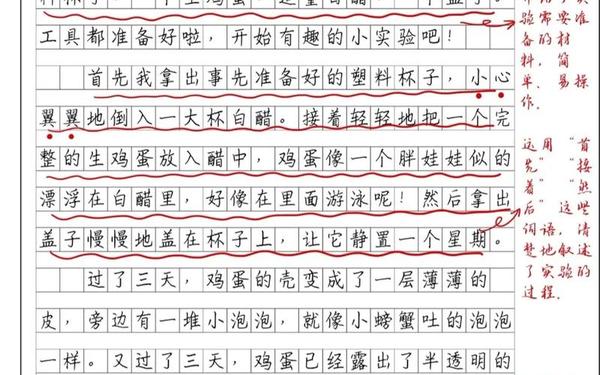 工具都准备好啦，开始有趣的小实验吧！
首先我拿出事先准备好的塑料杯子，小心
翼翼地倒入一大杯白醋。接着轻轻地把一个完
整的生鸡蛋放入醋中，鸡蛋像一个胖娃娃似的
漂浮在白醋里，好像在里面游泳呢！然后拿出
盖子慢慢地盖在杯子上，让它静置一个星期。
过了三天，鸡蛋的壳变成了一层薄薄的
皮，旁边有一堆小泡泡，就像小螃蟹吐的泡泡
一样。又过了三天，鸡蛋已经露出了半透明的
验需要准
备的材
料，简
单、易操
作.
这用“首
先”“接
着”“然
后”这些
词语，清
楚地叙述
了实验的
过程.